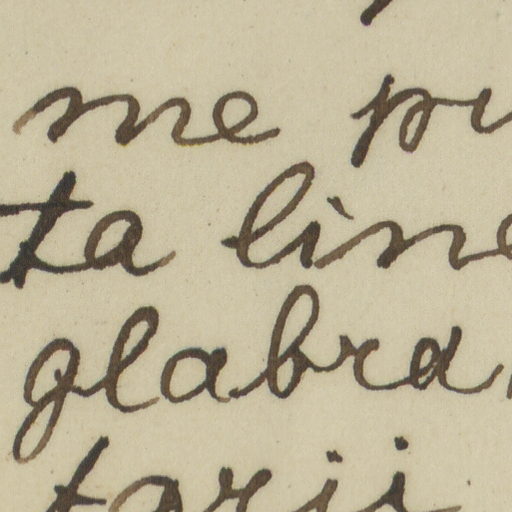 me pu
ta line
glabra
tarii